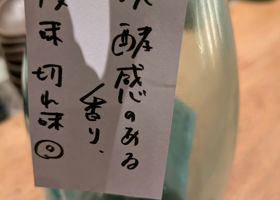 酵感のある
香り、
味 切れ味◎